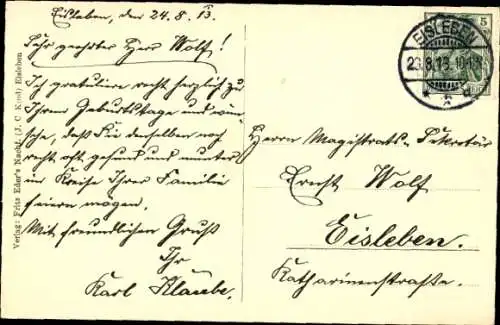 Eisleben, den 24.8.13.
Sehr geehrter Herr Wolf!
Ich gratuliere recht herzlich zu
Ihrem Geburtstage und wün-
sche, daß Sie denselben noch
recht oft gesund und munter
im Kreise Ihrer Familie
feiern mögen.
Mit freundlichem Gruß
Ihr
Karl Klaube.
Verlag: Fritz Eder's Nachf. (J. C. Kind) Eisleben
EISLEBEN
5
Herrn Magistrats-Sekretär
Ernst Wolf
Eisleben.
Katharinenstraße.